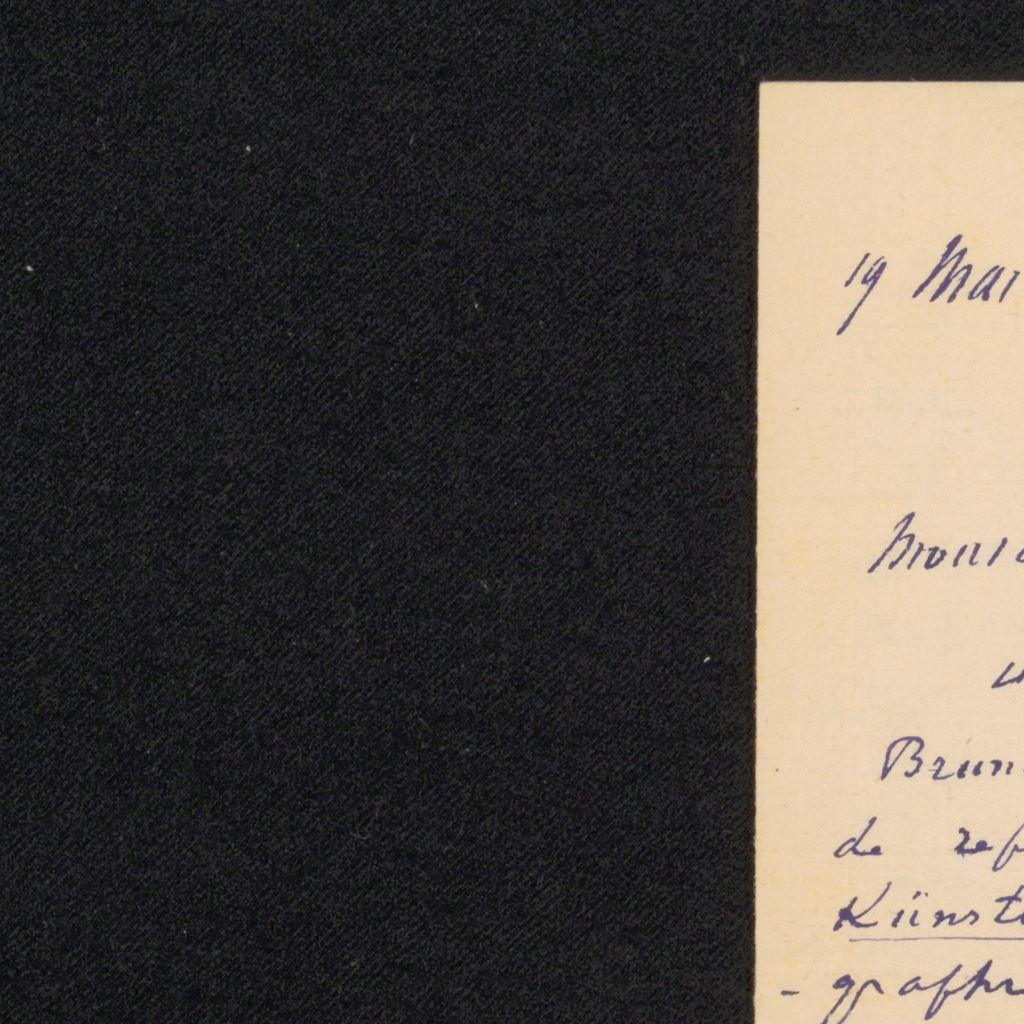 19 Mai
Monsi
Brun
de rep
Künste
- graphi